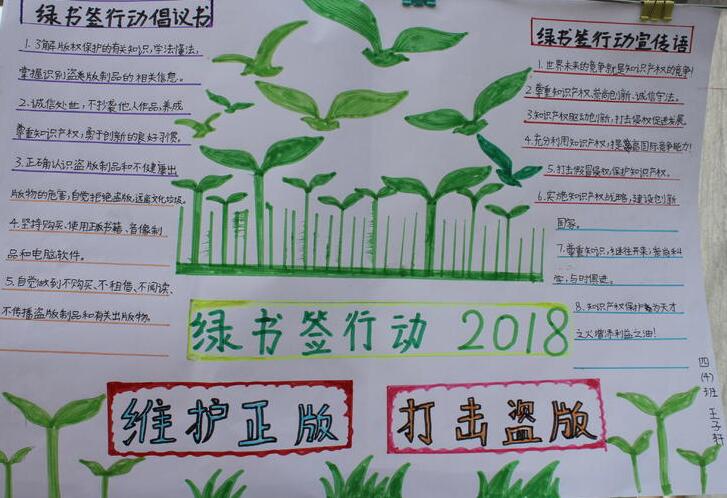 绿书签行动倡议书
1.了解版权保护的有关知识,学法懂法,
掌握识别盗类版制品的相关信息。
2.诚信处世,不抄袭他人作品,养成
尊重知识产权,勇于创新的良好习惯。
3.正确认识盗版制品和不健康出
版物的危害,自觉拒绝盗版,远离文化垃圾。
4.坚持购买、使用正版书籍、音像制
品和电脑软件。
5.自觉做到不购买、不租借、不阅读、
不传播盗版制品和有关出版物。
绿书签行动宣传语
1.世界未来的竞争就是知识产权的竞争!
2.尊重知识产权,崇尚创新、诚信守法。
3.知识产权驱动创新,打击侵权促进发展。
4.充分利用知识产权,提高国际竞争能力!
5.打击假冒侵权,保护知识产权。
6.实施知识产权战略,建设创新
国家。
7.尊重知识,继往开来;崇尚科
学,与时俱进。
8.知识产权保护为天才
之火增添利益之油!
绿书签行动 2018
维护正版
打击盗版
四(4)班 王子轩